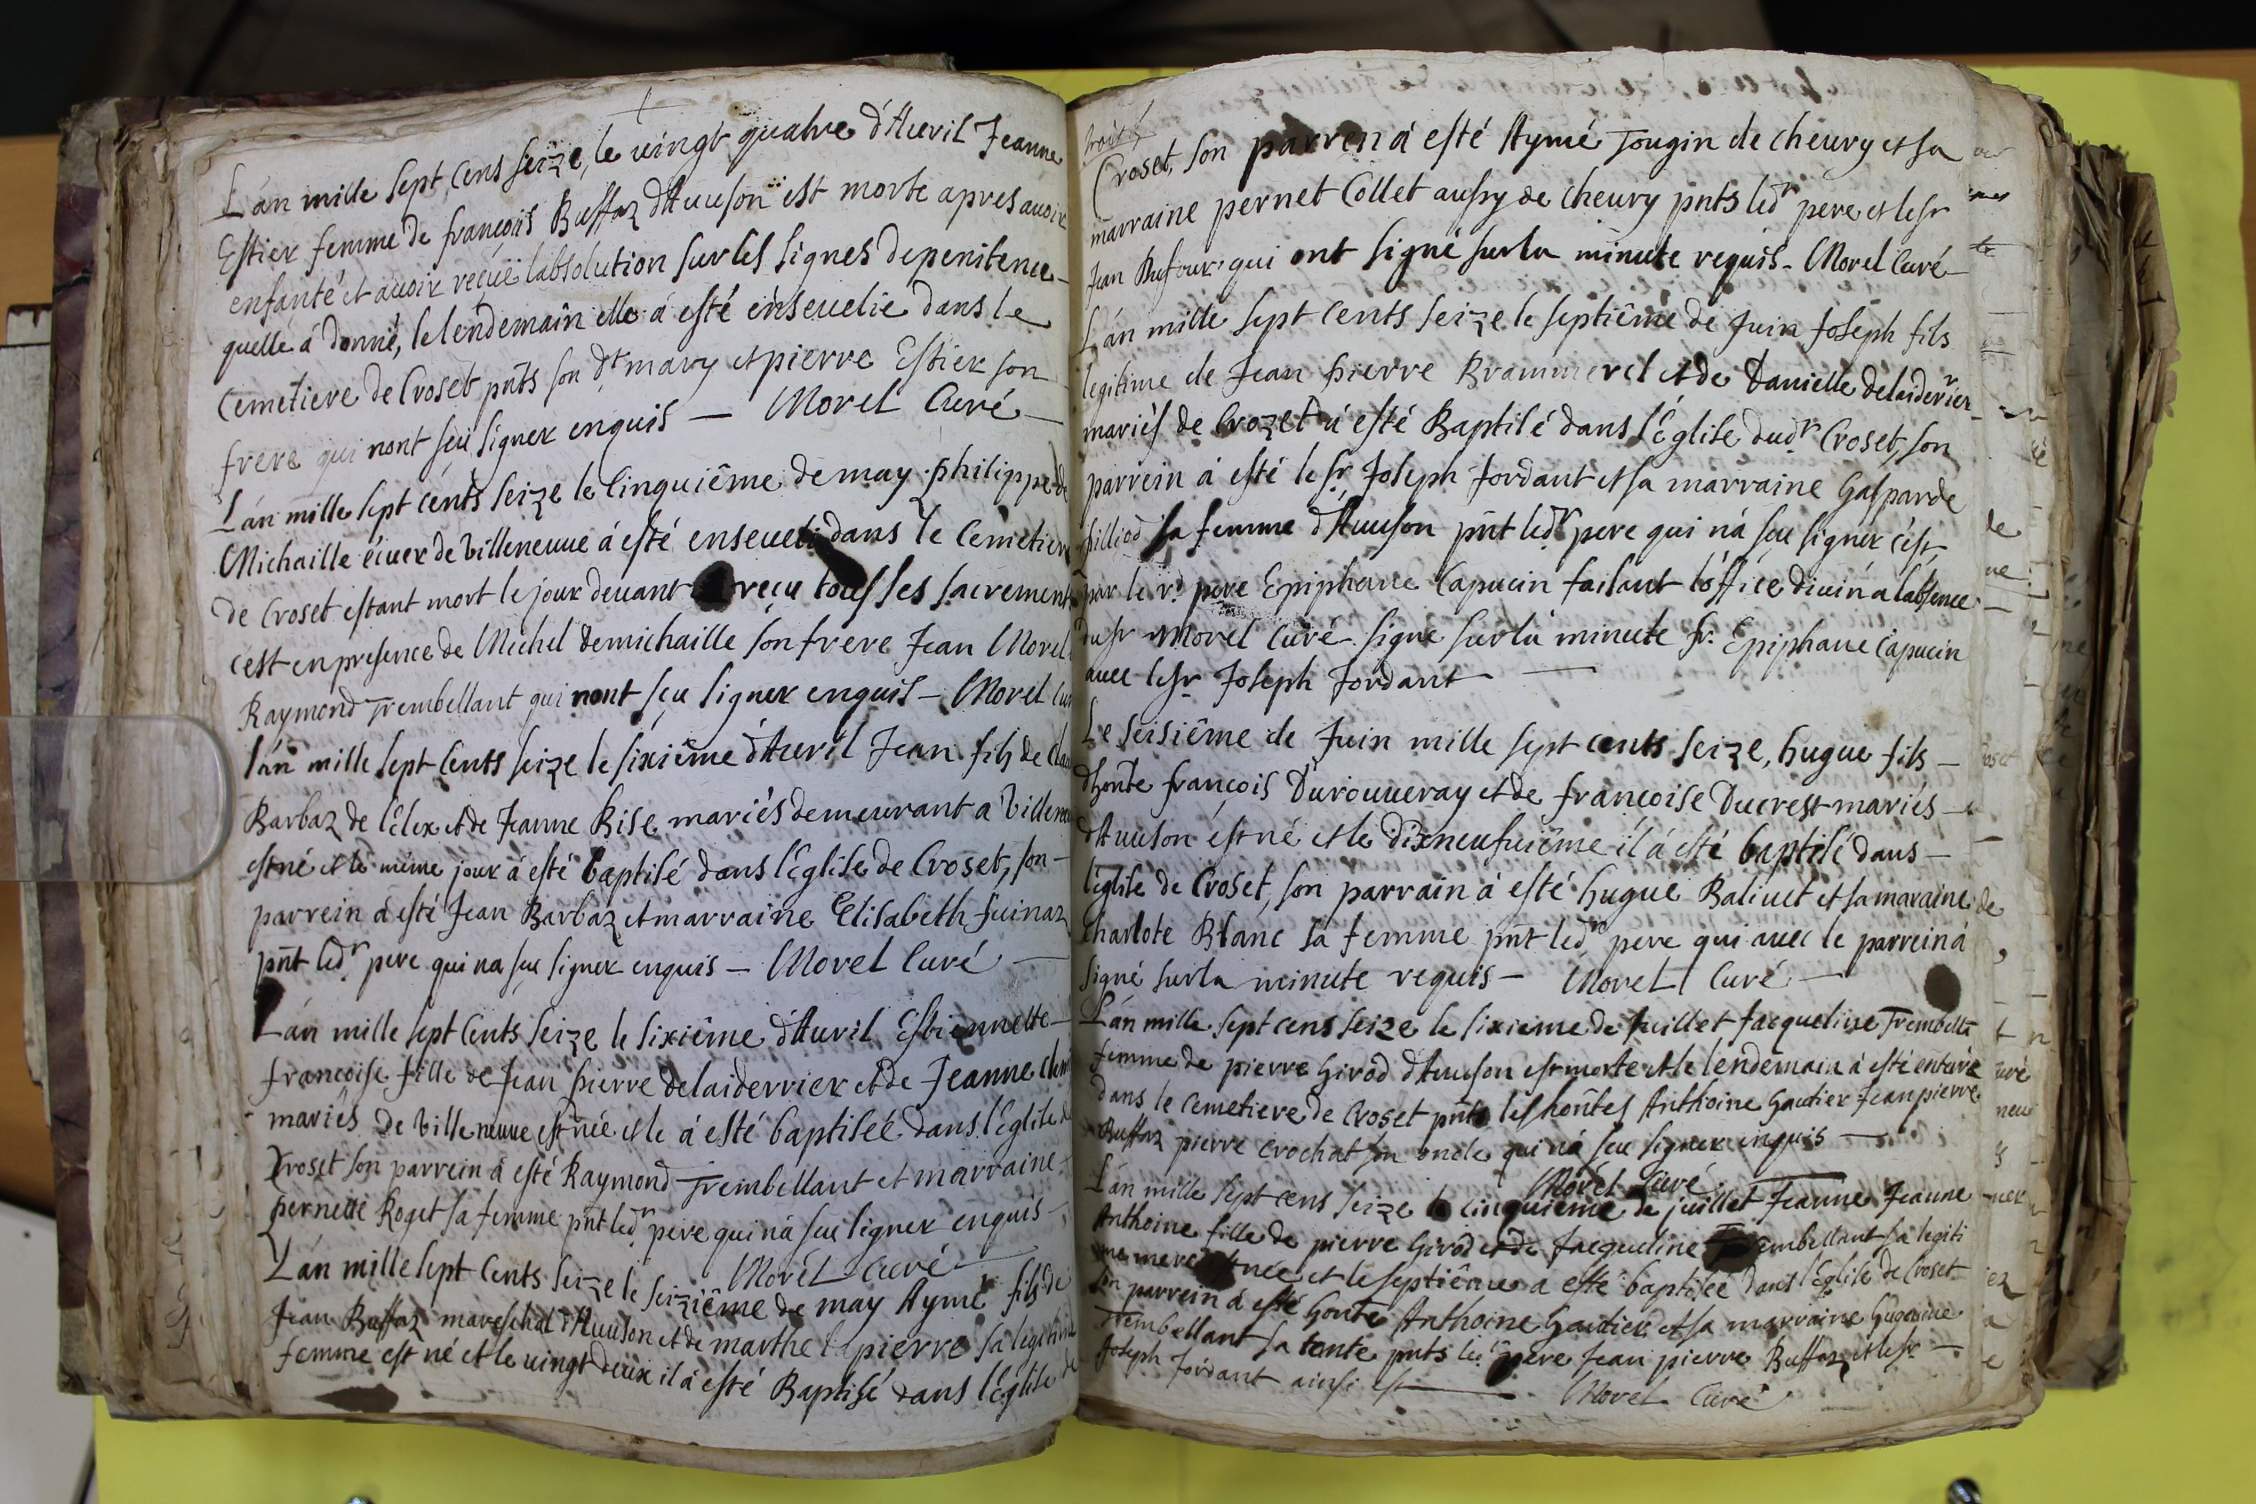 L'án mille sept cens seize, le vingt quatre d'Auvril Jeanne
Estier femme de françois Buffaz d'Avuson est morte apres avoir
enfanté et avoir reçüe l'absolution sur les signes de penitence
quelle á donné, le lendemain elle á esté ensevelie dans le
Cemetiere de Croset pñts son dt mary et pierre Estier son
frere qui nont sçu signer enquis — Morel Curé —
L'án mille sept cents seize le Cinquiême de may philippe de
Michaille éiuer de Villeneuve á esté enseveli dans le Cemetiere
de Croset estant mort le jour devant reçu tous ses sacrements
c'est en presence de Michel demichaille son frere Jean Morel
Raymond Trembellant qui nont sçu signer enquis — Morel Cu
L'án mille sept Cents seize le sixiême d'Auvril Jean fils de Cla
Barbaz de Lélex et de Jeanne Bise mariés demeurant a Villene
est né et le même jour á esté baptisé dans l'Eglise de Croset, son —
parrein á esté Jean Barbaz et marraine Elisabeth fuinaz
pñt ledt pere qui na sçu signer enquis — Morel Curé —
L'án mille sept Cents seize le sixiême d'Auvril Estiennette
françoise fille de Jean pierre delaiderrier et de Jeanne
mariés de Villeneuve est née et le á esté baptiseé dans l'Eglise de
Croset son parrein á esté Raymond Trembellant et marraine
pernette Roget sa femme pñt ledt pere qui ná sçu signer enquis —
Morel Curé
L'án mille sept Cents seize le seiziême de may Aymé fils de
Jean Buffaz mareschal d'Avuson et de marthe lapierre sa legitime
femme est né et le vingt deux il á esté Baptisé dans l'Eglise de
Croset, son parrein á esté Aymé Jougin de cheury et sa
marraine pernet Collet aussy de cheury pnts ledt pere et le sr
Jean Dufour qui ont signé sur la minute requis - Morel Curé
L'án mille sept Cents seize le septiême de Juin Joseph fils
legitime de Jean pierre Brammerel et de Danielle delaiderrier
mariés de Crozet á esté Baptisé dans l'Eglise dudt Croset, son
parrein á esté le sr Joseph Jordant et sa marraine Gasparde
filliod sa femme d'Avuson pñt ledt pere qui ná sçu signer c'est
par le rd pere Epiphane Capucin faisant l'office divin a l'absence
du sr Morel Curé signé sur la minute fr. Epiphane Capucin
avec le sr Joseph Jordant —
Le seisiême de Juin mille sept cents seize, hugue fils —
d'honte françois Durouveray et de françoise Ducrest mariés —
d'Avuson est né et le dixneufuiême il á esté baptisé dans —
l'église de Croset, son parrain á esté hugue Balivet et sa maraine
Charlote Blanc sa femme pñt ledt pere qui avec le parrein á
signé sur la minute requis — Morel Curé —
L'án mille sept cens seize le sixieme de Juillet Jacqueline Trembella
femme de pierre Girod d'Avuson est morte et le lendemain á esté enterré
dans le Cemetiere de Croset pñts les hontes Anthoine Gautier Jean pierre
Buffaz pierre Crochat son oncle qui ná sçu signer enquis —
Morel Curé
L'án mille sept cens seize le cinquieme de juillet Jeanne Jeanne
Anthoine fille de pierre Girod et de Jacqueline Trembellant sa legiti
me mere est née et le septiême a esté baptisée dans l'Eglise de Croset
son parrein á esté honte Anthoine Gautier et sa marraine Hugonine
Trembellant sa tante pnts ledt pere Jean pierre Buffaz et le sr —
Joseph Jordant ainsi est — Morel Curé